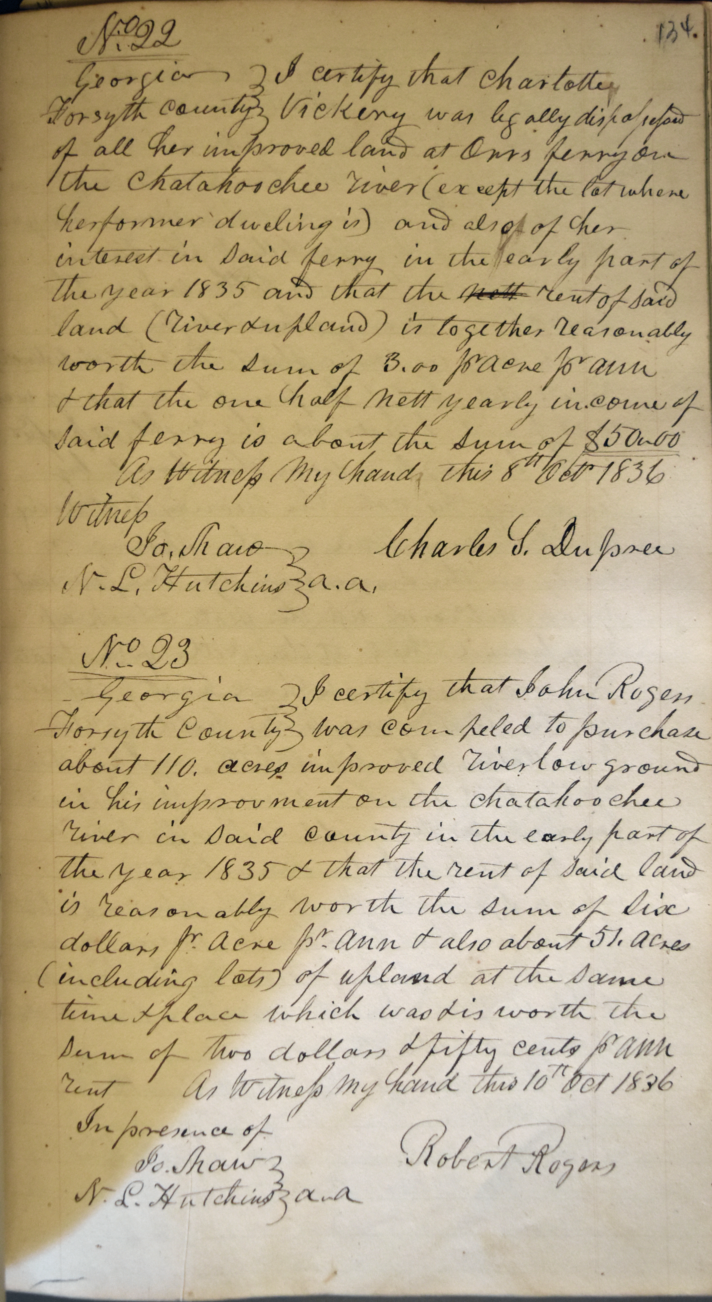 134.
No. 22
Georgia } I certify that Charlotte
Forsyth County } Vickery was legally dispossessed
of all her improved land at Orrs ferry on
the Chatahoochee river (except the lot where
her former dweling is) and also of her
interest in said ferry in the early part of
the year 1835 and that the nett rent of said
land (river & upland) is together reasonably
worth the sum of 3.00 pr acre pr ann
& that the one half nett yearly income of
said ferry is about the sum of $500.00
As Witness My hand this 8th Oct 1836
Witness
Jo. Shaw }
Charles S. Dupree
N. L. Hutchins } a.a.
No. 23
Georgia } I certify that John Rogers
Forsyth County } was compeled to purchase
about 110. acres improved river low ground
in his improvment on the Chatahoochee
river in said county in the early part of
the year 1835 & that the rent of said land
is reasonably worth the sum of six
dollars pr. acre pr. ann & also about 51. acres
(including lots) of upland at the same
time & place which was & is worth the
sum of two dollars & fifty cents pr ann
rent As Witness my hand this 10th Oct 1836
In presence of
Jo. Shaw }
Robert Rogers
N. L. Hutchins } a.a